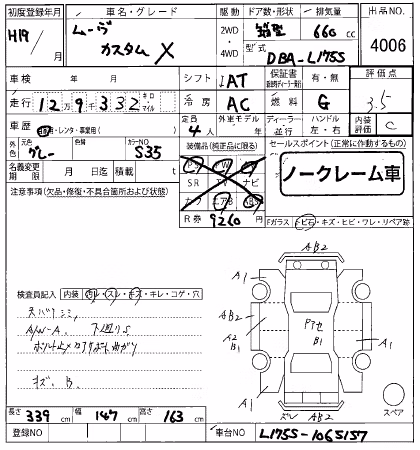 初度登録年月 車名・グレード 駆動 ドア数・形状 排気量 出品NO.
H19/ 月 ムーヴ カスタム X 2WD・4WD 箱型 660 cc 4006
型式 DBA-L175S
車検 年 月 シフト IAT 保証書 有・無 評価点
走行 12万9千332 キロ・マイル 冷房 AC 燃料 G 3.5
車歴 自家・レンタ・事業用( ) 定員 4人 外車モデル ディーラー・並行 ハンドル 左・右 内装評価 C
外色 元色 グレー 色替 カラーNO S35 装備品(純正品に限る) セールスポイント(正常に作動するもの)
名義変更期限 月 日迄 積載 t PS PW
ノークレーム車
注意事項(欠品・修復・不具合箇所および状態) SR TV ナビ
カワ エアB AW
R券 9260円 Fガラス トビ石・キズ・ヒビ・ワレ・リペア跡
AB2
A1 A1
検査員記入 内装 汚レ・スレ・キズ・キレ・コゲ・穴
AB2
A2
B1
Pアセ
B1
A1
A/W-A. 下廻りS
キズ、B.
A1 ズレ AB2 スペア
長さ 339 cm 幅 147 cm 高さ 163 cm
登録NO 車台NO L175S-1065157